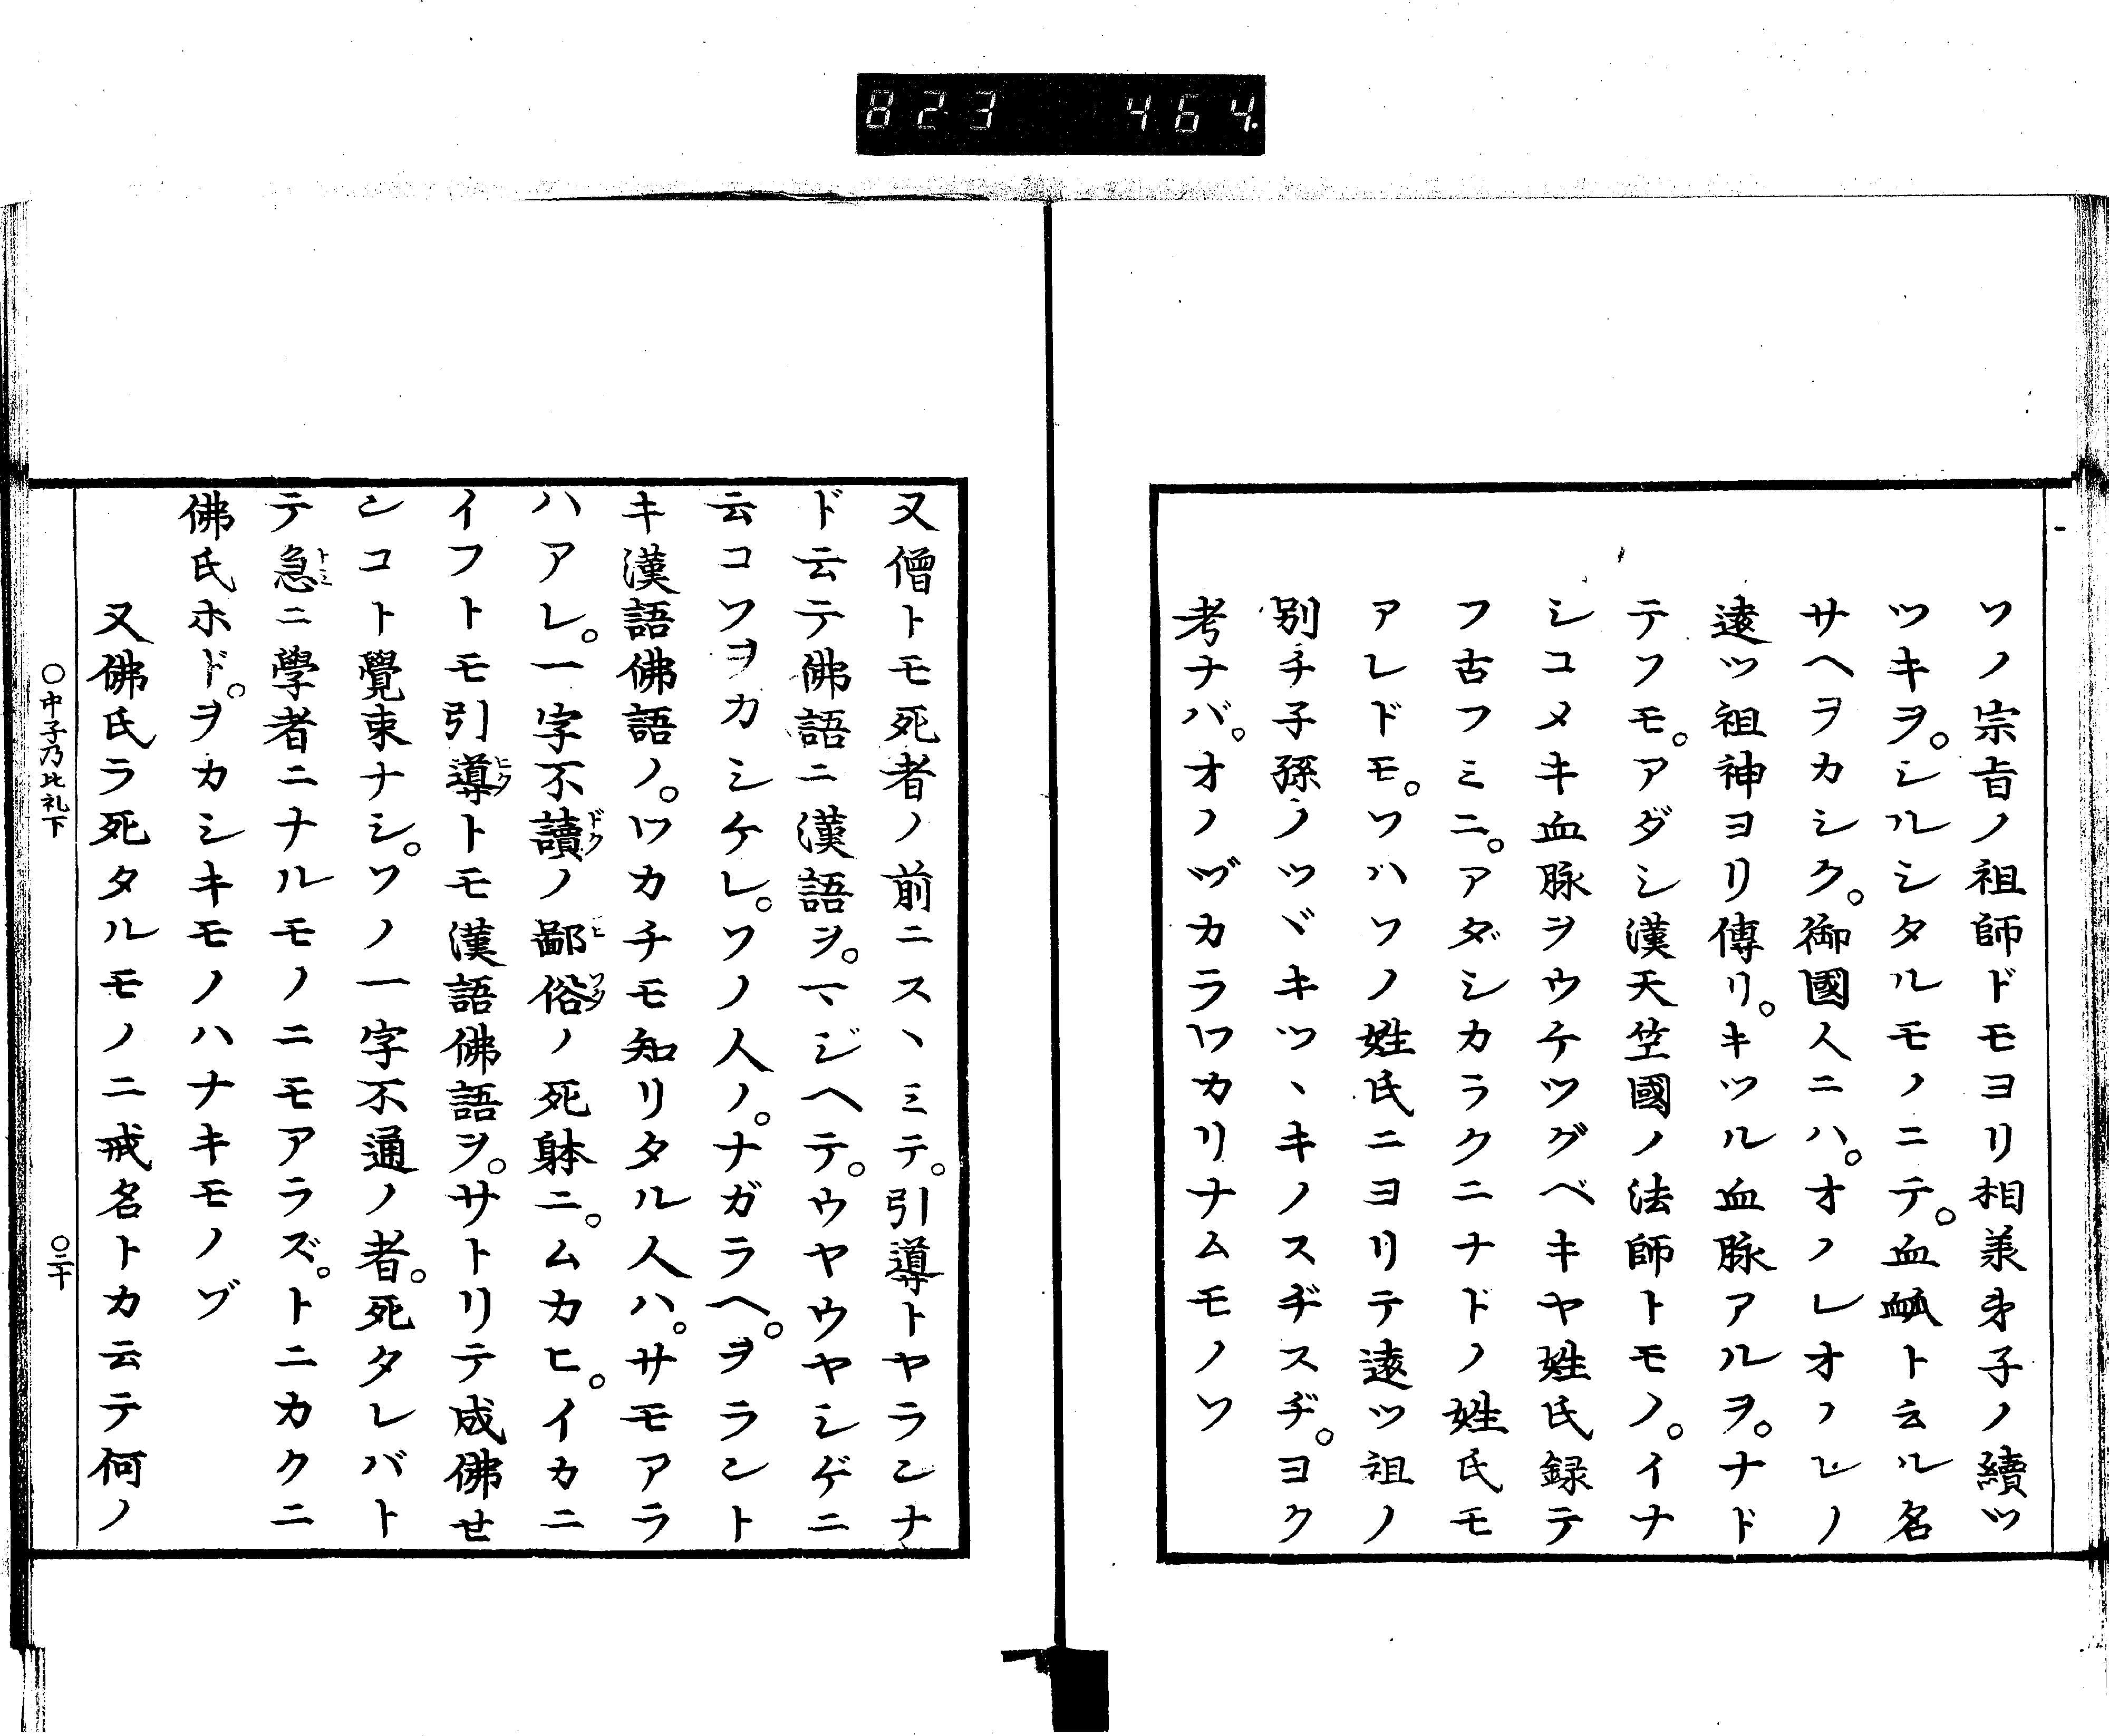 823 464
ソノ宗旨ノ祖師ドモヨリ相承弟子ノ續ツ
ツキヲ。シルシタルモノニテ。血脉ト云ル名
サヘヲカシク。御國人ニハ。オノレオノレノ
遠ツ祖神ヨリ傳リ。キツル血脉アルヲ。ナド
テソモ。アダシ漢天竺國ノ法師トモノ。イナ
シコメキ血脉ヲウケツグベキヤ姓氏録テ
フ古フミニ。アダシカラクニナドノ姓氏モ
アレドモ。ソハソノ姓氏ニヨリテ遠ツ祖ノ
別チ子孫ノツヾキツヽキノスヂスヂ。ヨク
考ナバ。オノヅカラワカリナムモノソ
又僧トモ死者ノ前ニスヽミテ。引導トヤランナ
ド云テ佛語ニ漢語ヲ。マジヘテ。ウヤウヤシゲニ
云コソヲカシケレ。ソノ人ノ。ナガラヘ。ヲラント
キ漢語佛語ノ。ワカチモ知リタル人ハ。サモアラ
ハアレ。一字不讀ドクノ鄙ヒ俗ゾクノ死躰ニ。ムカヒ。イカニ
イフトモ引導ヒクトモ漢語佛語ヲ。サトリテ成佛せ
ンコト覺束ナシ。ソノ一字不通ノ者。死タレバト
テ急トミニ學者ニナルモノニモアラズ。トニカクニ
佛氏ホド。ヲカシキモノハナキモノゾ
又佛氏ラ死タルモノニ戒名トカ云テ何ノ
○中子乃比礼下 ○二十